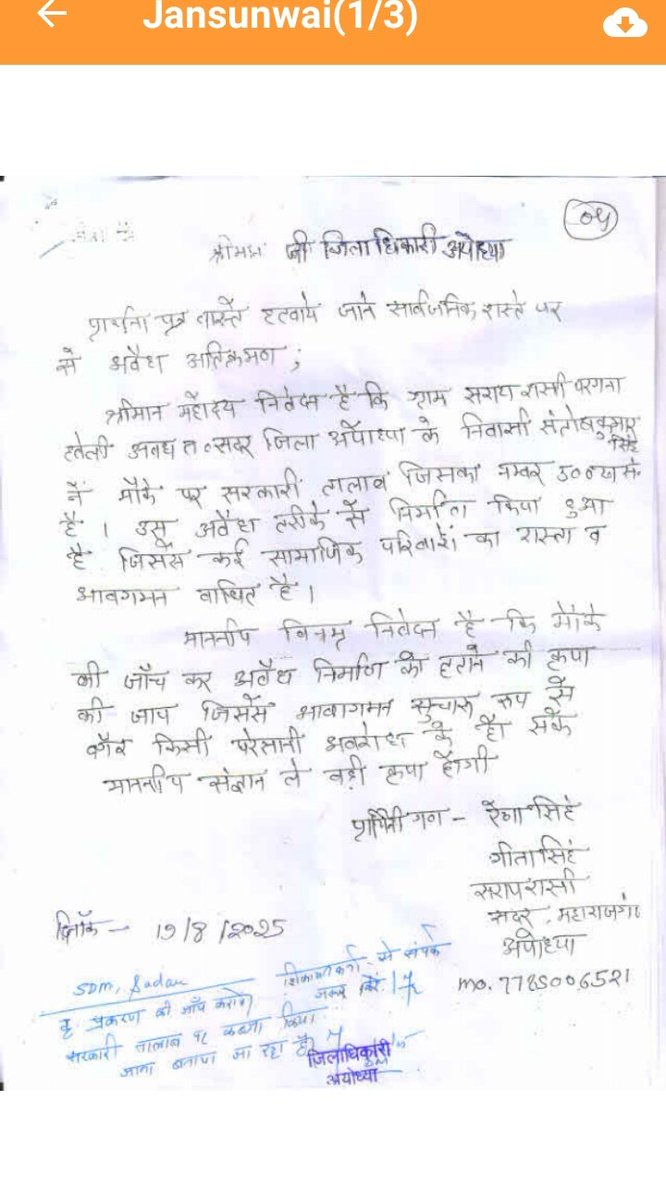 Jansunwai(1/3)
04
श्रीमान जी जिलाधिकारी अयोध्या
प्रार्थना पत्र वास्ते हटवाये जाने सार्वजनिक रास्ते पर
से अवैध अतिक्रमण ;
श्रीमान महोदय निवेदन है कि ग्राम सराय रासी परगना
हवेली अवध त० सदर जिला अयोध्या के निवासी संतोषकुमार
सिंह
नें मौके पर सरकारी तालाब जिसका नम्बर 500ख से.
है । उसू अवैध तरीके सें निर्माता किया हुआ
है जिससे कई सामाजिक परिवारों का रास्ता व
आवगमन बाधित है ।
माननीय विनम्र निवेदन है कि मौके
की जाँच कर अवैध निर्माण को हटाने की कृपा
की जाय जिससे आवागमन सुचारू रूप से
बगैर किसी परेसानी अवरोध के हो सके
माननीय संज्ञान ले बड़ी कृपा होगी
प्रार्थिनी गण - रेना सिंह
गीता सिंह
सराय रासी
सदर, महाराजगंज
अयोध्या
दिनाँक - 19/8/2025
mo. 7785006521
SDM, Sadar
शिकायतकर्ता से संपर्क
जरूर किया
कृ प्रकरण की जाँच करायें
सरकारी तालाब पर कब्जा किया
जाना बताया जा रहा है
जिलाधिकारी
अयोध्या